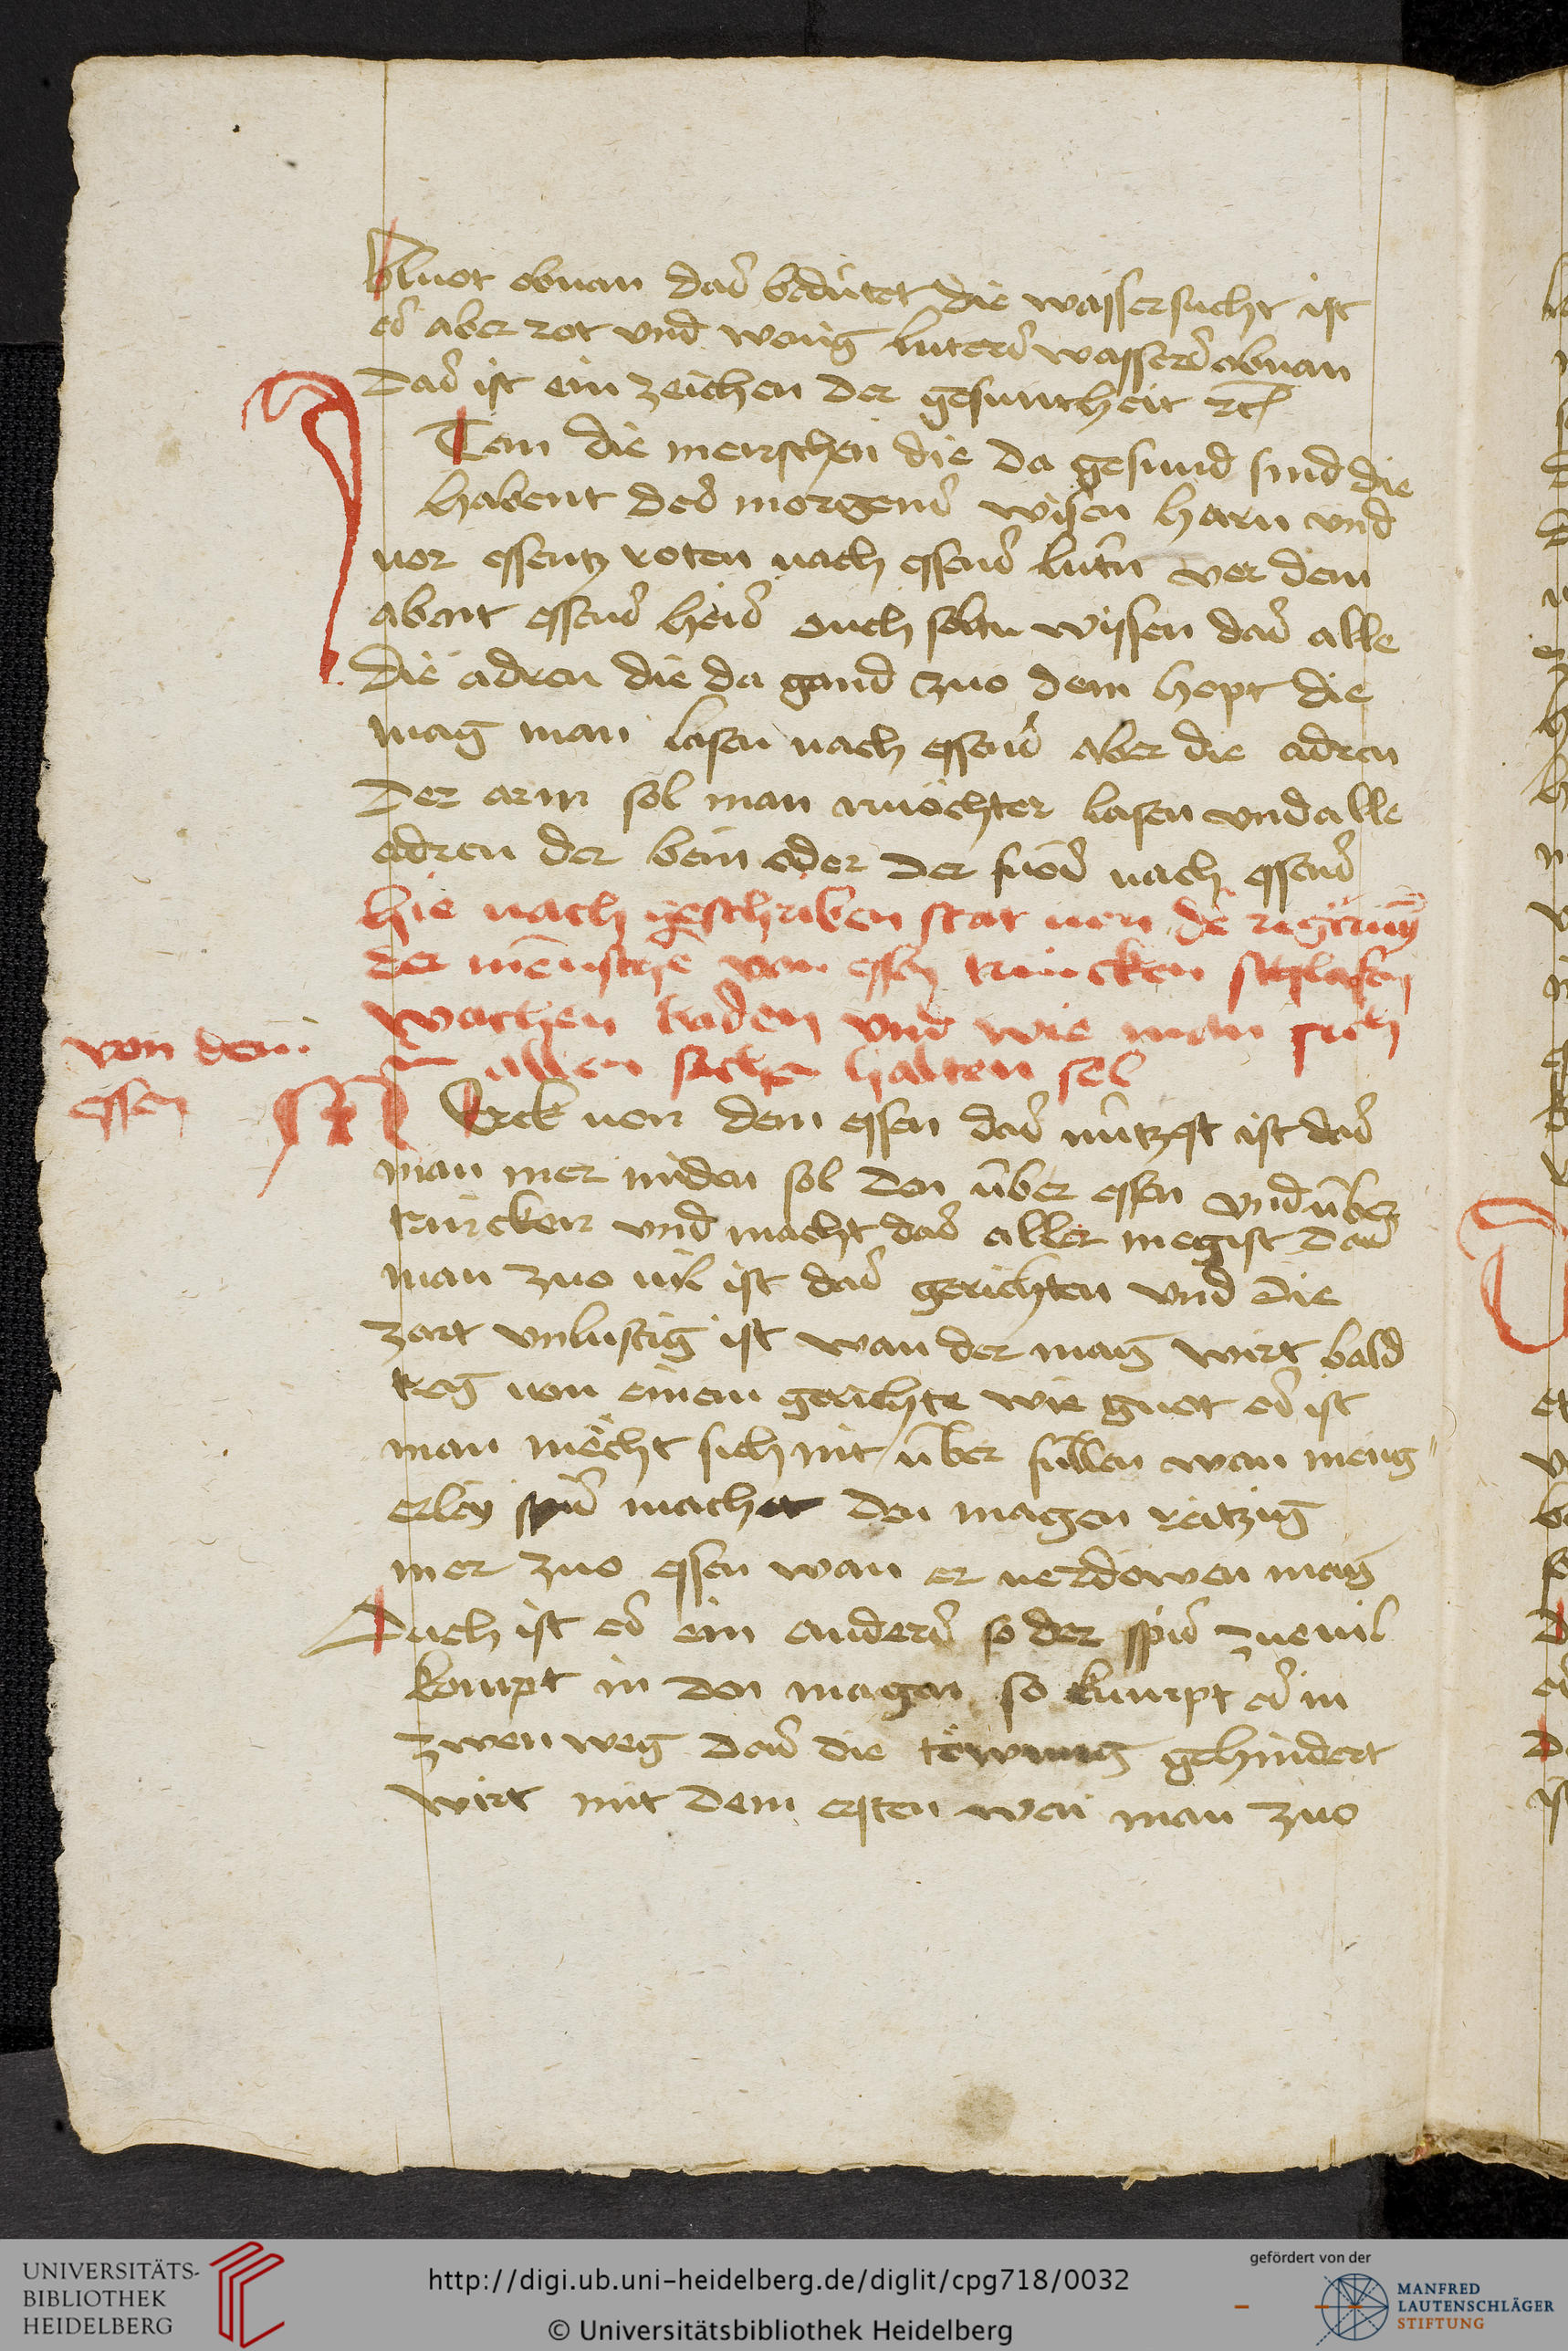 bluot obnan das bedütet die wassersucht ist
es aber rot und wenig luters wassers obnan
das ist ein zeichen der gesuntheit ꝛc
Item die menschen die da gesund sind die
habent des morgens wisen harn und
vor essentz roten nach essens lutern vor dem
abent essens heis ouch soltu wissen das alle
die adren die da gand zuo dem hopt die
mag man lasen nach essens aber die adren
der arm sol man nüochter lasen und alle
adren der bein oder der füos nach essens
hie nach geschriben stat von de regirung
der mēnsche von essen trincken schlafen
wachen baden und wie man sich
in allen sachen halten sol
von dem
essen
Merck von dem essen das nützest ist das
man mer miden sol den über essen und über
trincken und macht das aller megist das
man zuo vil ist das gerichten und die
zart unlustig ist wan der mag wirt bald
treg von einem gerichte wie guot es ist
man möcht sich nit über füllen wan meng
erley spis machet den magen reitzig
mer zuo essen wan er verdowen mag
Ouch ist es ein anders so der spis zuo vil
kompt in den magen so kumpt es in
zwen weg das die töwung gehindert
wirt mit dem ersten wen man zuo
UNIVERSITÄTS-
BIBLIOTHEK
HEIDELBERG
http://digi.ub.uni-heidelberg.de/diglit/cpg718/0032
© Universitätsbibliothek Heidelberg
gefördert von der
MANFRED
LAUTENSCHLÄGER
STIFTUNG